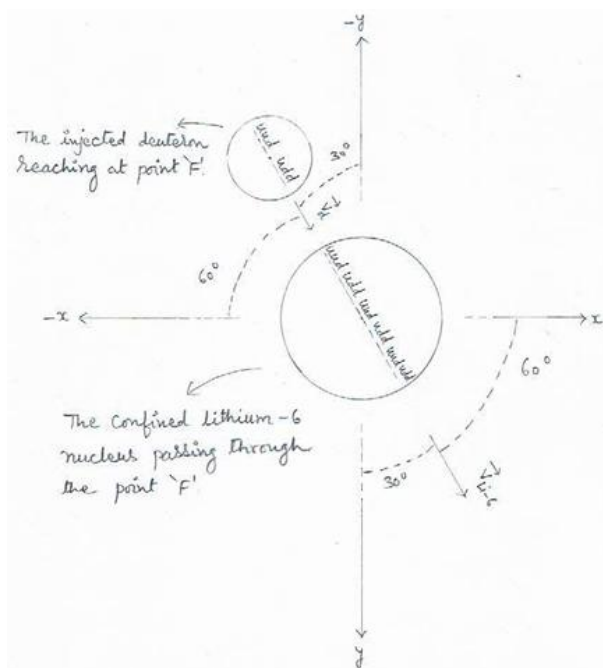 -y
The injected deuteron
reaching at point 'F'.
uud udd
30°
60°
-x
x
uud udd uud udd uud udd
60°
The confined lithium-6
nucleus passing through
the point 'F'
30°
Li-6
y